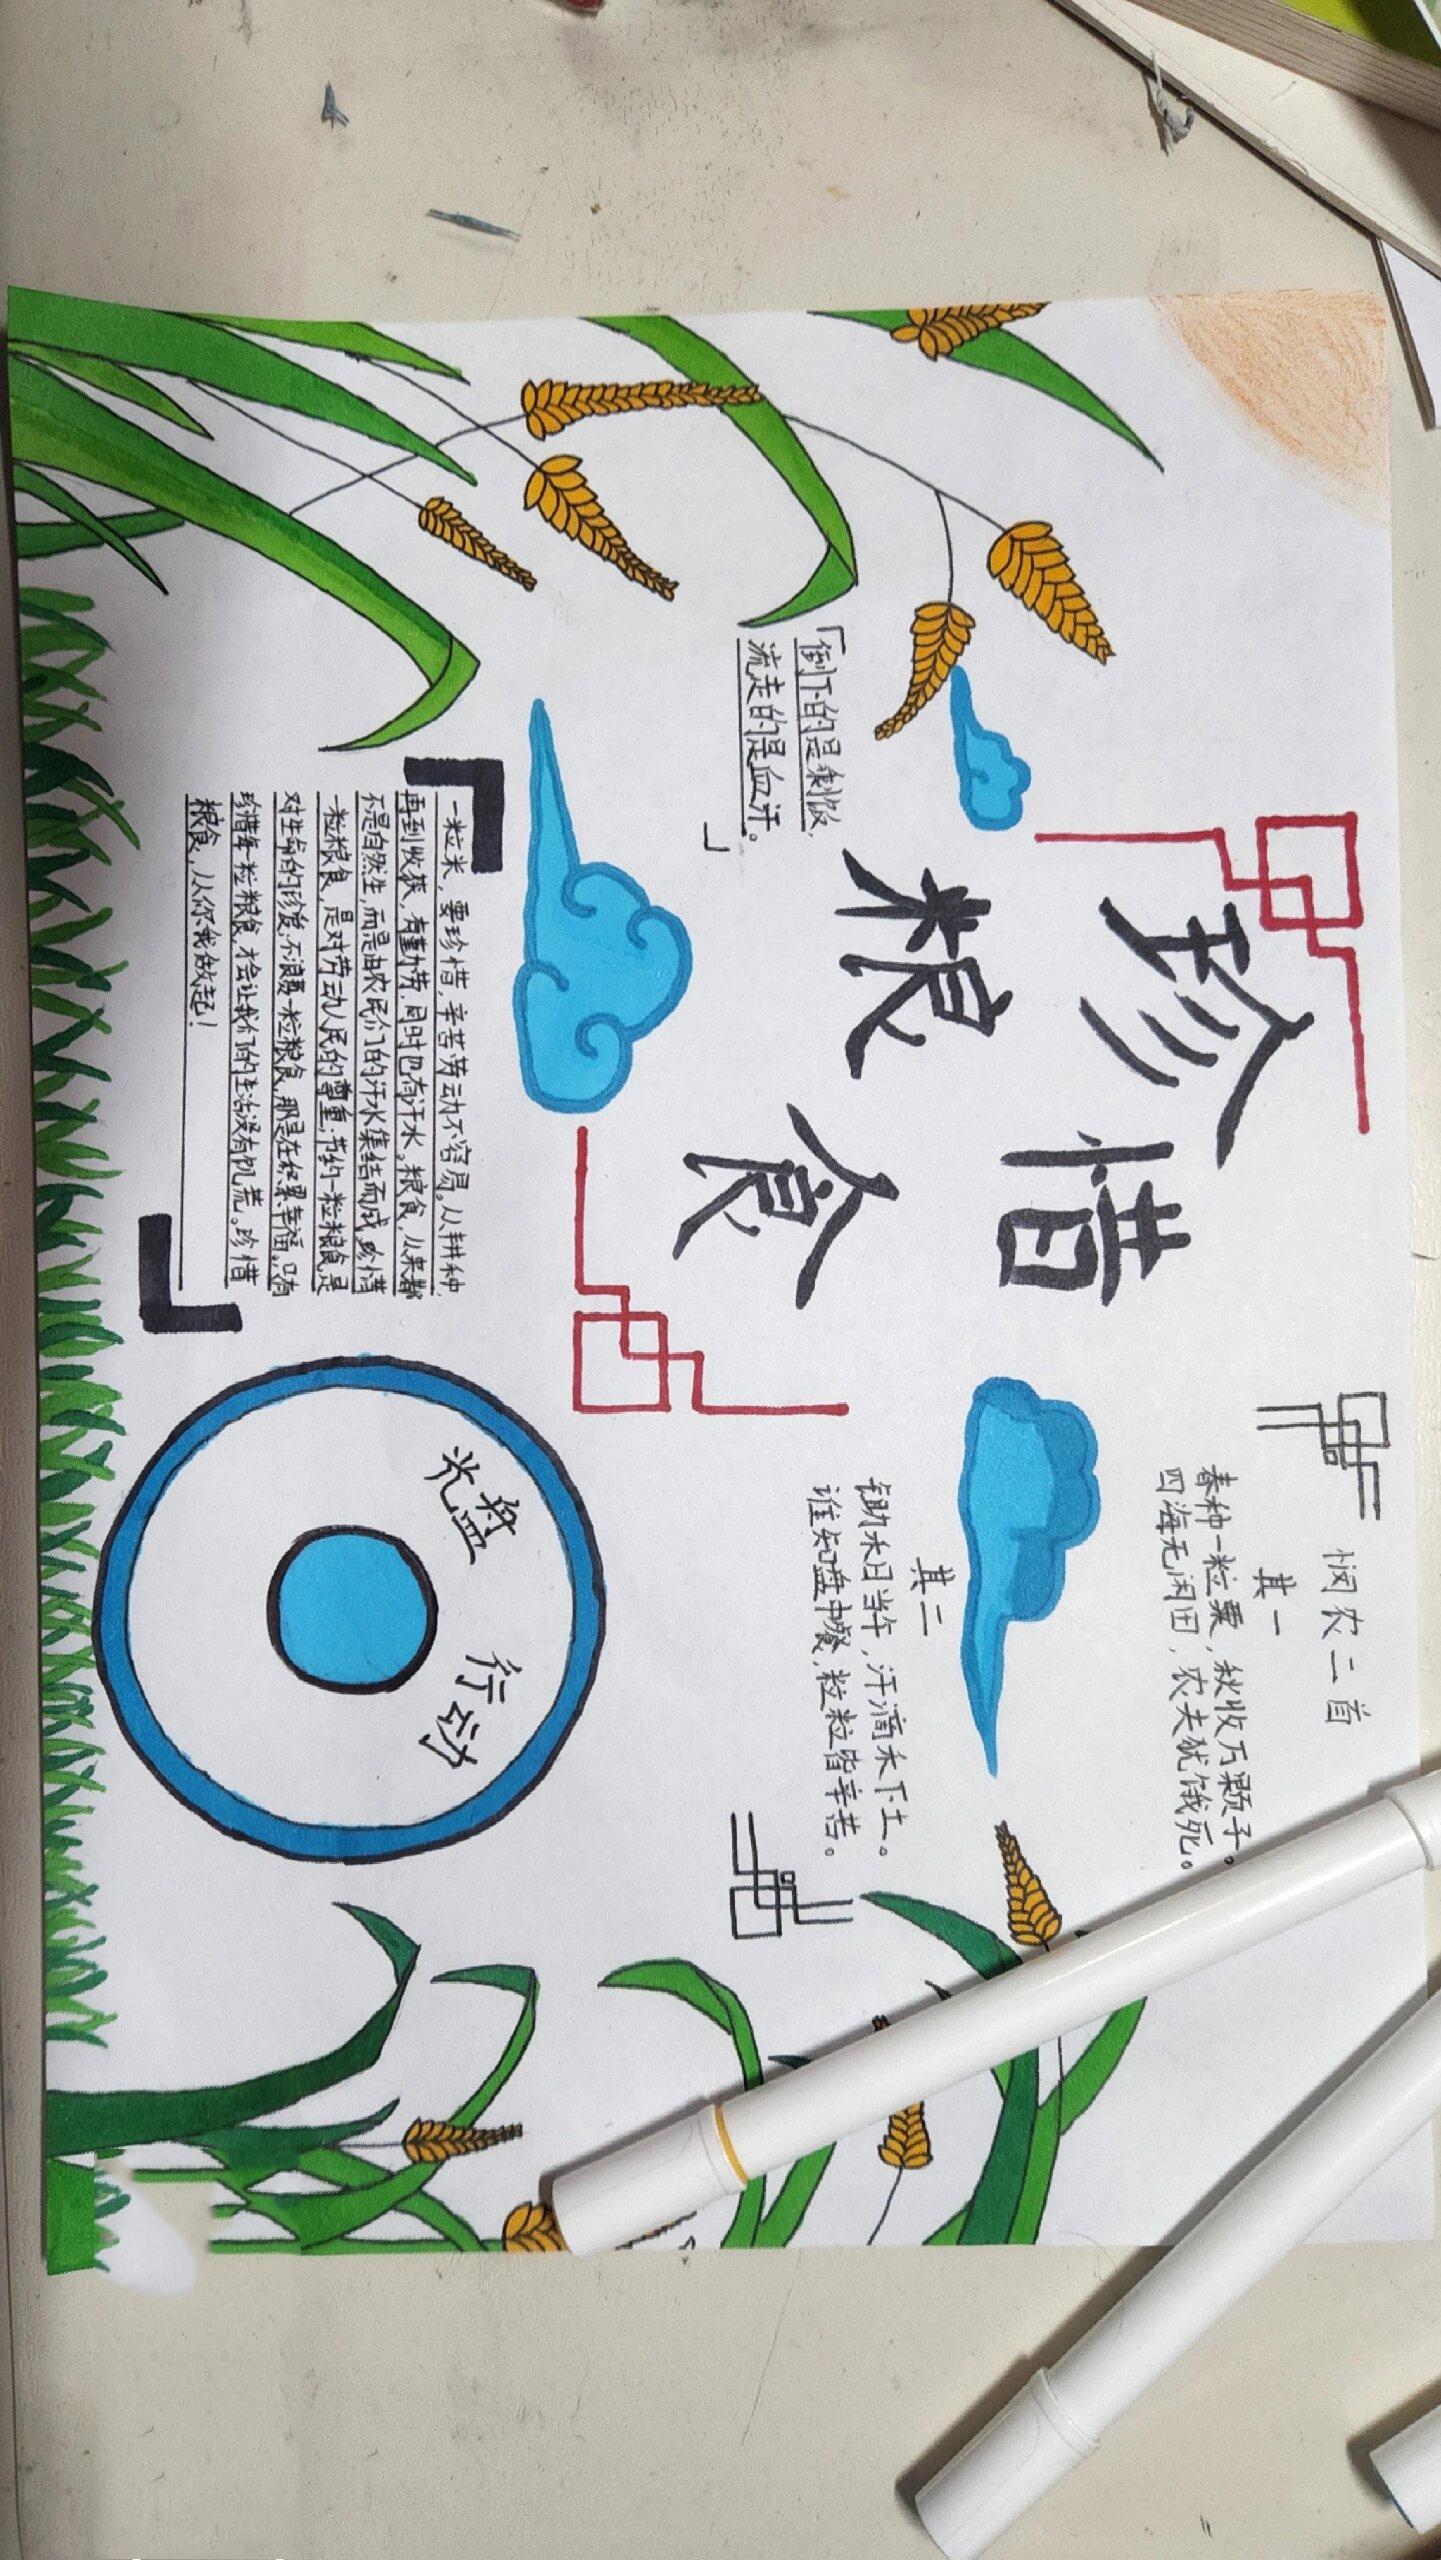 珍惜
粮食
「倒下的是剩饭,
流走的是血汗。」
悯农二首
其一
春种一粒粟,秋收万颗子。
四海无闲田,农夫犹饿死。
其二
锄禾日当午,汗滴禾下土。
谁知盘中餐,粒粒皆辛苦。
一粒米,要珍惜,辛苦劳动不容易。从耕种,
再到收获,有勤劳,同时也有汗水,粮食,从来都
不是自然生,而是由农民们的汗水集结而成,珍惜
一粒粮食,是对劳动人民的尊重;节约一粒粮食,是
对生命的珍爱;不浪费一粒粮食,那是在积累幸福。只有
珍惜每一粒粮食,才会让我们的生活没有饥荒。珍惜
粮食,从你我做起!
光盘 行动